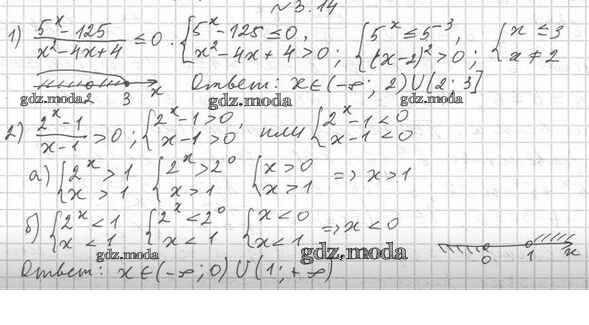 №3.14
1) (5^x-125)/(x²-4x+4) ≤ 0. {5^x-125≤0, x²-4x+4>0; {5^x≤5^-3, (x-2)²>0; {x≤3 x≠2
2 3 x Ответ: x∈(-∞; 2)∪[2; 3]
gdz.moda gdz.moda
2) (2^x-1)/(x-1) >0; {2^x-1>0, x-1>0 или {2^x-1<0 x-1<0
а) {2^x>1 x>1 {2^x>2^0 x>1 {x>0 x>1 => x>1
б) {2^x<1 x<1 {2^x<2^0 x<1 {x<0 x<1 => x<0
0 1 x
gdz.moda gdz.moda
Ответ: x∈(-∞;0)∪(1;+∞)